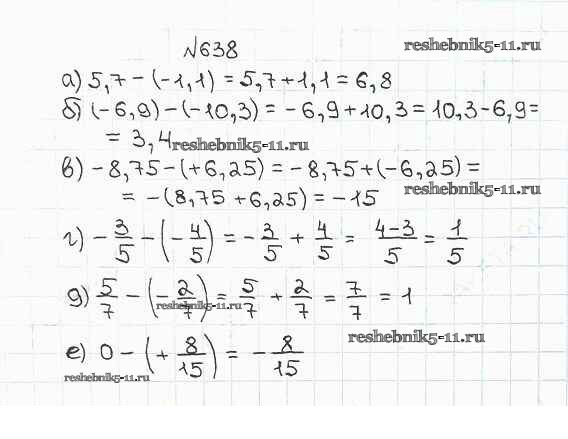 №638
reshebnik5-11.ru
а) 5,7 - (-1,1) = 5,7 + 1,1 = 6,8
б) (-6,9) - (-10,3) = -6,9 + 10,3 = 10,3 - 6,9 =
= 3,4
reshebnik5-11.ru
в) -8,75 - (+6,25) = -8,75 + (-6,25) =
reshebnik5-11.ru
= -(8,75 + 6,25) = -15
г) - 3/5 - (- 4/5) = - 3/5 + 4/5 = 4-3/5 = 1/5
д) 5/7 - (- 2/7) = 5/7 + 2/7 = 7/7 = 1
reshebnik5-11.ru
reshebnik5-11.ru
е) 0 - (+ 8/15) = - 8/15
reshebnik5-11.ru